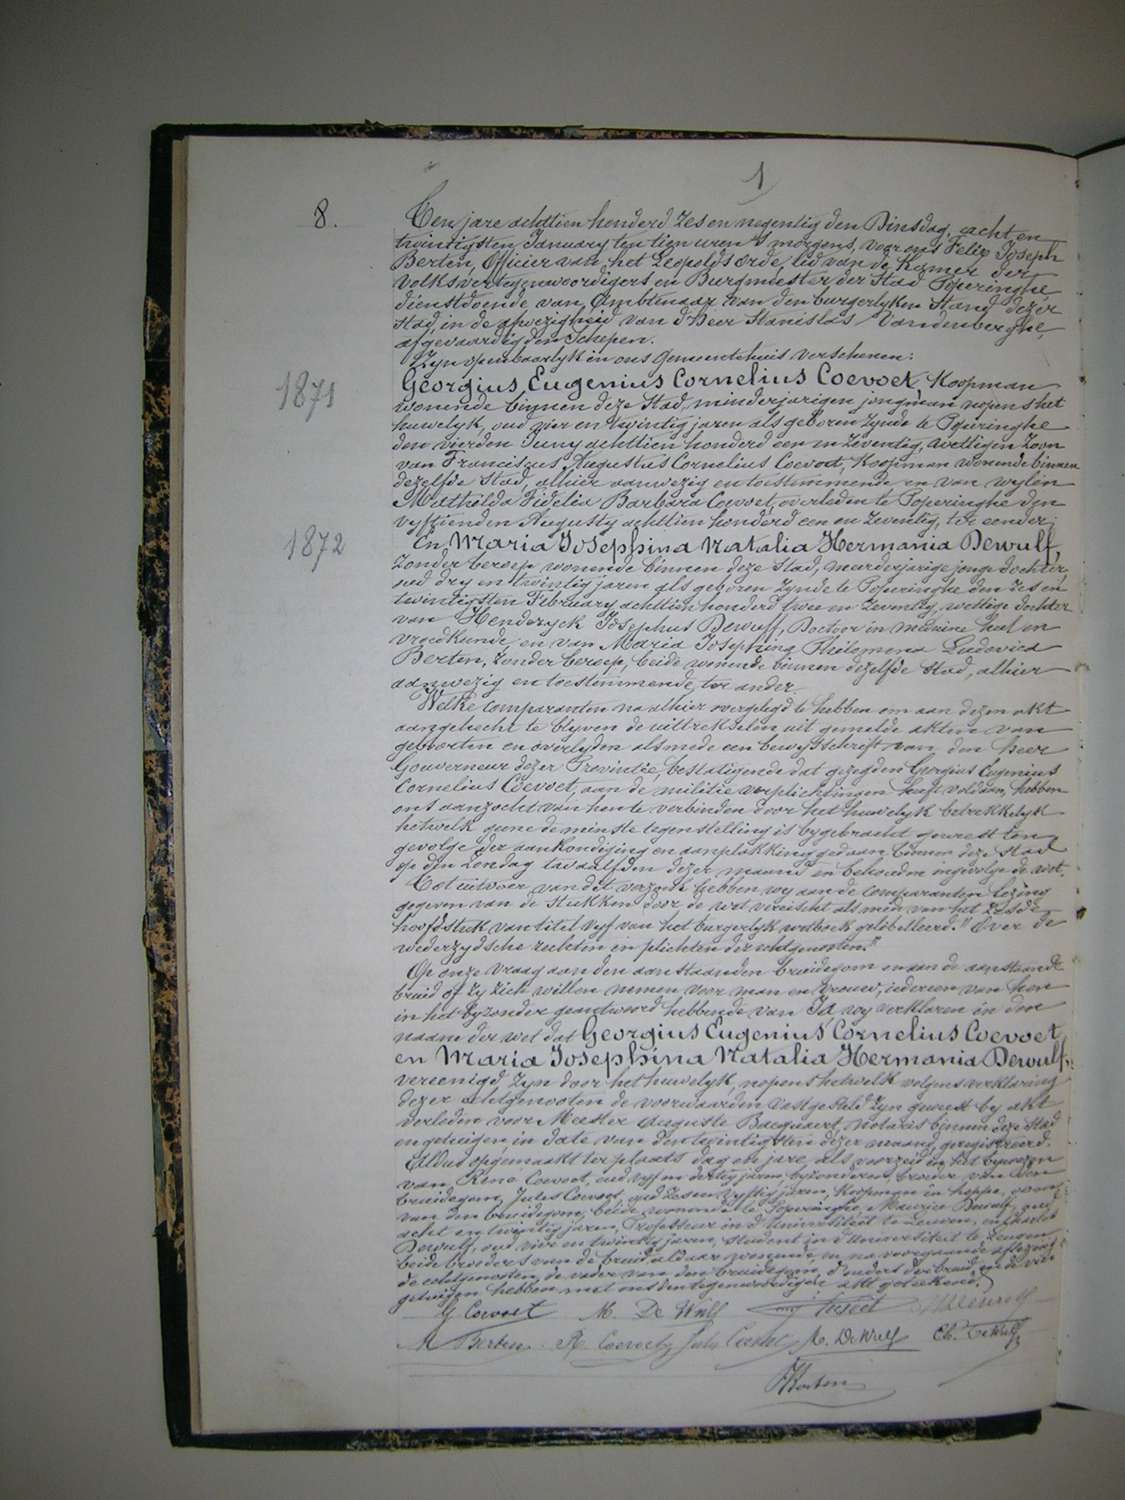 1
8.
Den jare achttien honderd zes en negentig den Dinsdag, acht en
twintigsten January ten tien uren 's morgens, voor ons Felix Joseph
Berten, Officier van het Leopolds orde, lid van de Kamer der
Volksvertegenwoordigers en Burgmeester der Stad Poperinghe
dienstdoende van Ambtenaar van den burgerlyken Stand dezer
Stad, in de afwezigheid van d'Heer Stanislas Vandenberghe,
afgevaardigden Schepen.
Zyn openbaarlyk in ons Gemeentehuis verschenen:
1871
Georgius Eugenius Cornelius Coevoet, Koopman
wonende binnen deze Stad, minderjarigen jongman nopens het
huwelyk, oud vier en twintig jaren als geboren zynde te Poperinghe
den vierden Juny achttien honderd een en zeventig, wettigen zoon
van Franciscus Augustus Cornelius Coevoet, Koopman wonende binnen
dezelfde Stad, alhier aanwezig en toestemmende en van wylen
Mathilda Fidelia Barbara Coevoet, overleden te Poperinghe den
vyftienden Augusty achttien honderd een en zeventig, ter eender;
1872
En Maria Josephina Natalia Hermania Dewulf,
Zonder beroep wonende binnen deze Stad, meerderjarige jonge dochter,
oud dry en twintig jaren als geboren zynde te Poperinghe den zes en
twintigsten February achttien honderd twee en zeventig, wettige dochter
van Henderyck Josephus Dewulf, Doctoor in medicine heel en
vroedkunde, en van Maria Josephina Philomena Ludovica
Berten, zonder beroep, beide wonende binnen dezelfde Stad, alhier
aanwezig en toestemmende, ter ander.
Welke comparanten na alhier overgelegd te hebben om aan dezen akt
aangehecht te blyven de uittrekselen uit gemelde akten van
geboorten en overlyden alsmede een bewysschrift van den heer
Gouverneur dezer Provintie bestatigende dat gezegden Georgius Eugenius
Cornelius Coevoet, aan de militie verplichtingen heeft voldaan, hebben
ons aanzocht van hun te verbinden door het huwelyk betrekkelyk
hetwelk geene de minste tegenstelling is bygebracht geweest ten
gevolge der aankondiging en aanplakking gedaan binnen deze Stad
op den Zondag twaalfden dezer maand en behouden ingevolge de wet.
Tot uitvoer van dit verzoek hebben wy aan de comparanten lezing
gegeven van de stukken door de wet vereischt alsmede van het zesde
hoofdstuk van titel vyf van het burgerlyk wetboek getitelleerd: "Over de
wederzydsche rechten en plichten der echtgenooten."
Op onze vraag aan den aanstaanden bruidegom en aan de aanstaande
bruid of zy zich willen nemen voor man en vrouw, iedereen van hen
in het byzonder geantwoord hebbende van Ja, wy verklaren in den
naam der wet dat Georgius Eugenius Cornelius Coevoet
en Maria Josephina Natalia Hermania Dewulf,
vereenigd zyn door het huwelyk, nopens hetwelk volgens verklaring
dezer echtgenooten de voorwaarden vastgesteld zyn geweest by akt
verleden voor Meester Auguste Bacquaert, notaris binnen deze Stad
en getuigen, in date van den twintigsten dezer maand, geregistreerd.
Aldus opgemaakt ter plaats dag en jare als voorzeid in het bywezen
van René Coevoet, oud vyf en dertig jaren, byzonderen, broeder van den
bruidegom, Jules Coevoet, oud zes en vyftig jaren, Koopman in hoppe, oom
van den bruidegom, beide wonende te Poperinghe, Maurice Dewulf, oud
acht en twintig jaren, Professeur in d'Universiteit te Leuven, en Charles
Dewulf, oud vier en twintig jaren, student in d'Universiteit te Leuven
beide broeders van de bruid aldaar wonende, en na voorgaande aflezing
de echtgenooten, de vader van den bruidegom, d'ouders der bruid en de vier
getuigen hebben met ons den tegenwoordigen akt geteekend.
G Coevoet M. De Wulf
M Berten R. Coevoet Jules Coevoet M. De Wulf Ch. De Wulf
F Berten